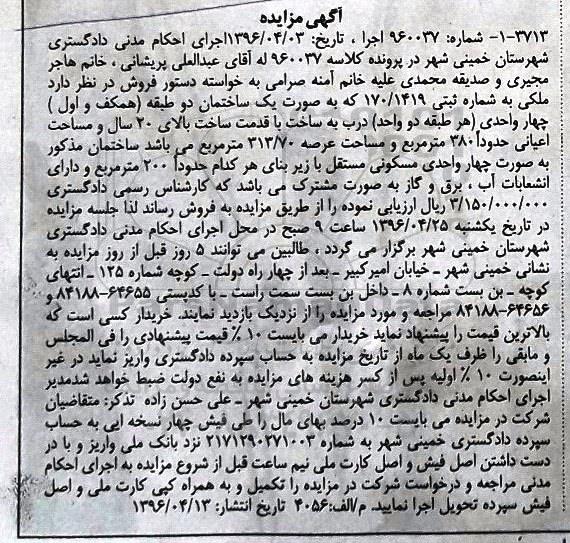 آگهی مزایده
۳۷۱۳-۱- شماره: ۹۶۰۰۳۷ اجرا ، تاریخ: ۱۳۹۶/۰۴/۰۳اجرای احکام مدنی دادگستری
شهرستان خمینی شهر در پرونده کلاسه ۹۶۰۰۳۷ له آقای عبدالعلی پریشانی ، خانم هاجر
مجیری و صدیقه محمدی علیه خانم آمنه صرامی به خواسته دستور فروش در نظر دارد
ملکی به شماره ثبتی ۱۷۰/۱۴۱۹ که به صورت یک ساختمان دو طبقه (همکف و اول )
چهار واحدی (هر طبقه دو واحد) درب به ساخت با قدمت ساخت بالای ۲۰ سال و مساحت
اعیانی حدوداً۳۸۰ مترمربع و مساحت عرصه ۳۱۳/۷۰ مترمربع می باشد ساختمان مذکور
به صورت چهار واحدی مسکونی مستقل با زیر بنای هر کدام حدوداً ۲۰۰ مترمربع و دارای
انشعابات آب ، برق و گاز به صورت مشترک می باشد که کارشناس رسمی دادگستری
۳/۱۵۰/۰۰۰/۰۰۰ ریال ارزیابی نموده را از طریق مزایده به فروش رساند لذا جلسه مزایده
در تاریخ یکشنبه ۱۳۹۶/۰۴/۲۵ ساعت ۹ صبح در محل اجرای احکام مدنی دادگستری
شهرستان خمینی شهر برگزار می گردد ، طالبین می توانند ۵ روز قبل از روز مزایده به
نشانی خمینی شهر ـ خیابان امیرکبیر ـ بعد از چهار راه دولت ـ کوچه شماره ۱۲۵ ـ انتهای
کوچه ـ بن بست شماره ۸ ـ داخل بن بست سمت راست ـ با کدپستی ۶۴۶۵۵-۸۴۱۸۸ و
۶۴۶۵۶-۸۴۱۸۸ مراجعه و مورد مزایده را از نزدیک بازدید نمایند. خریدار کسی است که
بالاترین قیمت را پیشنهاد نماید خریدار می بایست ۱۰ ٪ قیمت پیشنهادی را فی المجلس
و مابقی را ظرف یک ماه از تاریخ مزایده به حساب سپرده دادگستری واریز نماید در غیر
اینصورت ۱۰ ٪ اولیه پس از کسر هزینه های مزایده به نفع دولت ضبط خواهد شدمدیر
اجرای احکام مدنی دادگستری شهرستان خمینی شهر ـ علی حسن زاده  تذکر: متقاضیان
شرکت در مزایده می بایست ۱۰ درصد بهای مال را طی فیش چهار نسخه ایی به حساب
سپرده دادگستری خمینی شهر به شماره ۲۱۷۱۲۹۰۲۷۱۰۰۳ نزد بانک ملی واریز و با در
دست داشتن اصل فیش و اصل کارت ملی نیم ساعت قبل از شروع مزایده به اجرای احکام
مدنی مراجعه و درخواست شرکت در مزایده را تکمیل و به همراه کپی کارت ملی و اصل
فیش سپرده تحویل اجرا نمایید. م/الف:۴۰۵۶  تاریخ انتشار: ۱۳۹۶/۰۴/۱۳